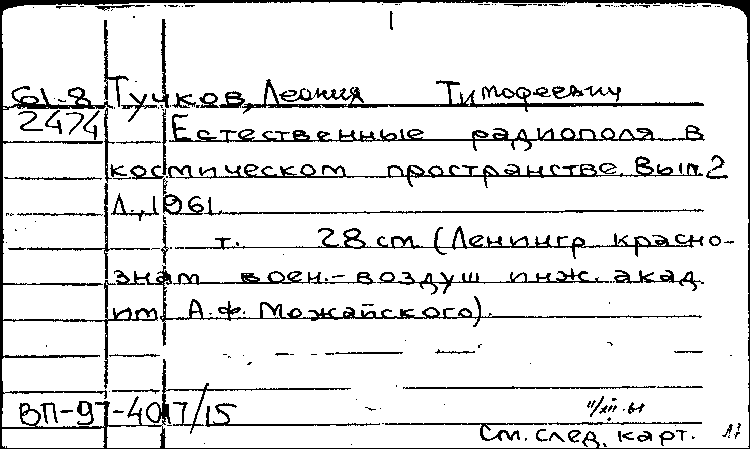 61-8 Тучков, Леонид Тимофеевич
2474 Естественные радиополя в
космическом пространстве. Вып. 2
Л., 1961.
т. 28 см. (Ленингр. красно-
знам. воен.-воздуш. инж. акад.
им. А.Ф. Можайского).
ВП-97-4017/15 11/III-61
См. след. карт.